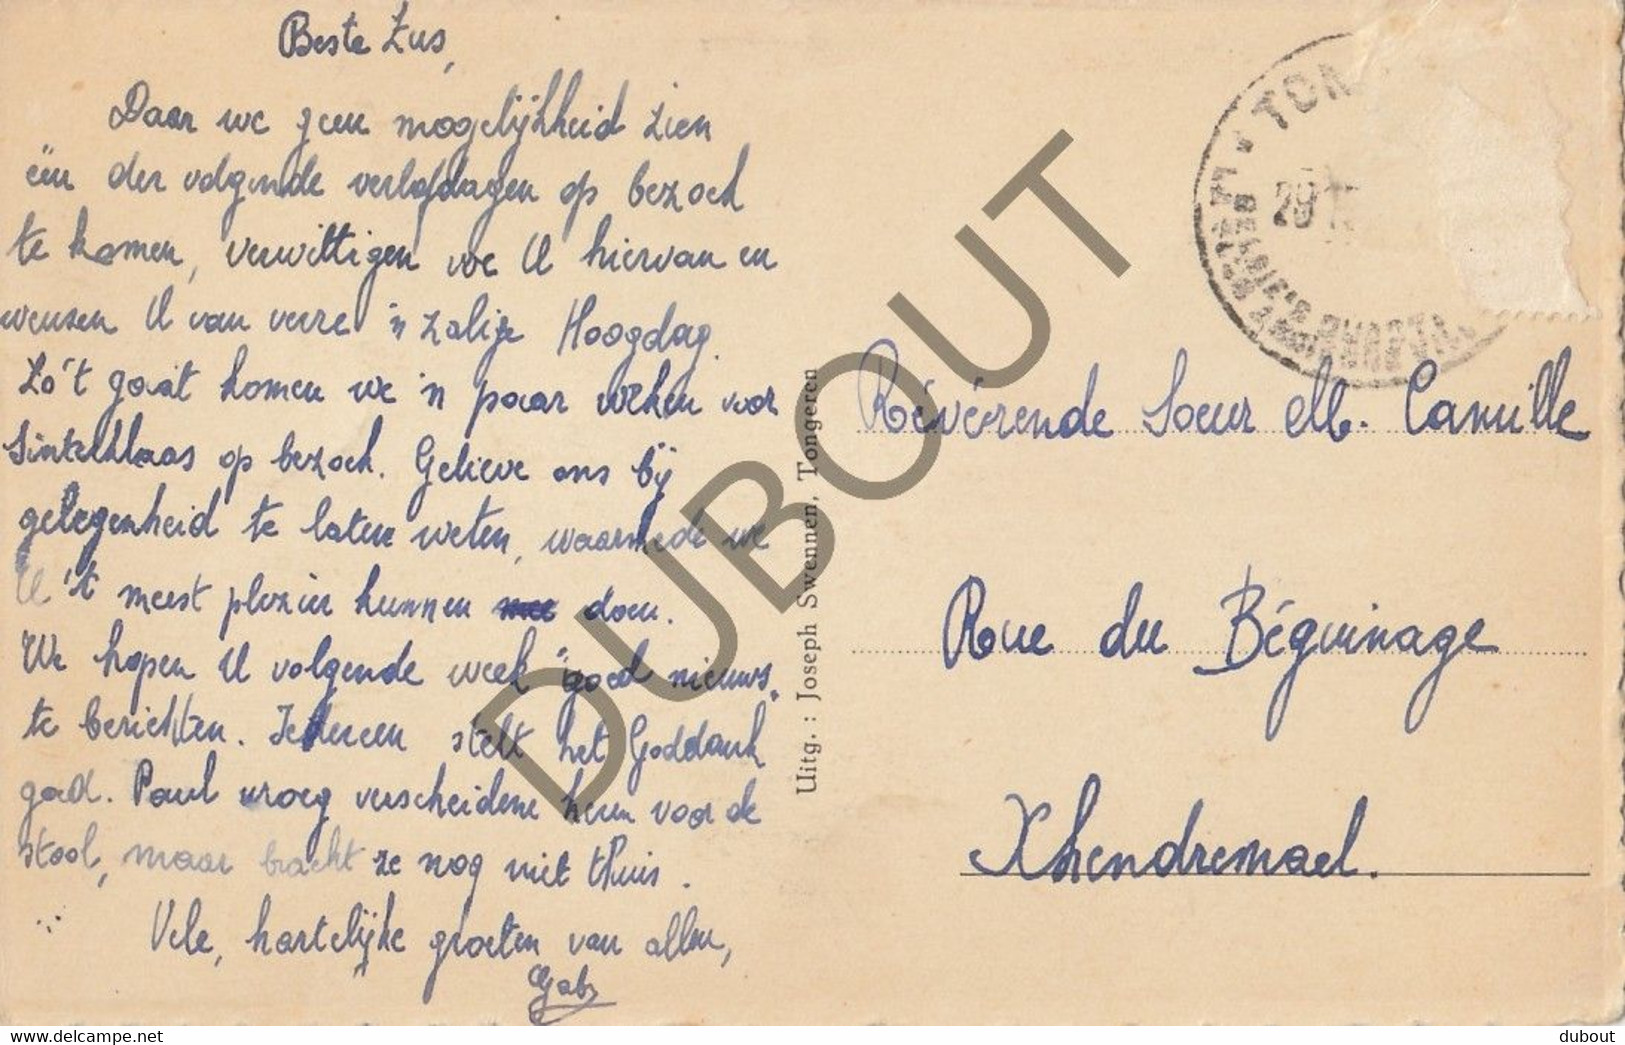 Beste Zus,
Daar we geen mogelijkheid zien
één der volgende verlofdagen op bezoek
te komen, verwittigen we U hiervan en
wensen U van verre 'n zalige Hoogdag.
Zo 't gaat komen we 'n paar weken voor
Sinterklaas op bezoek. Gelieve ons bij
gelegenheid te laten weten, waarmede we
U 't meest plezier kunnen doen.
We hopen U volgende week "goed nieuws"
te berichten. Iedereen stelt het Goddank
goed. Paul vroeg verscheidene keren voor de
stool, maar bracht ze nog niet thuis.
Vele, hartelijke groeten van allen,
Gaby
Uitg. : Joseph Swennen, Tongeren
TON
29
Révérende Soeur M. Camille
Rue du Béguinage
Xhendremael.
DUBOUT
https://www.delcampe.net
dubout